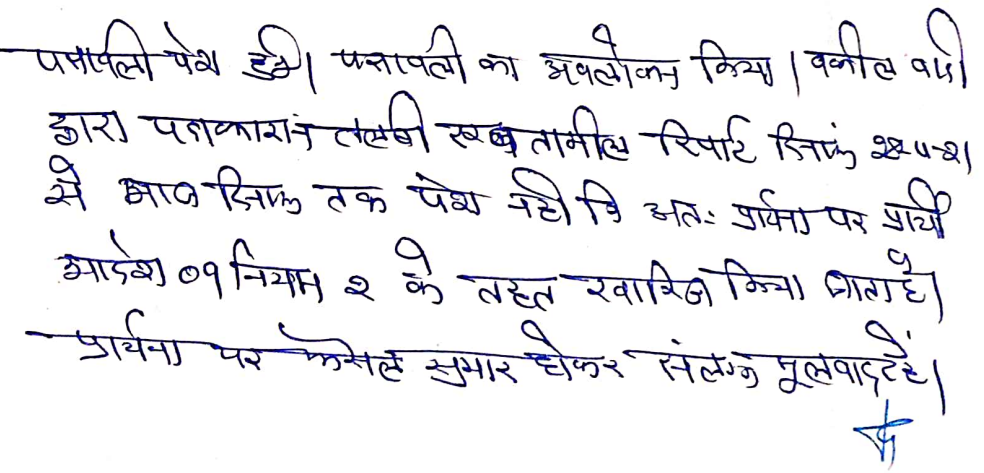 पत्रावली पेश हुई। पत्रावली का अवलोकन किया। वकील वादी
द्वारा पक्षकारान तलबी तामील रिपोर्ट दिनांक
से आज दिनांक तक पेश नही कि अतः प्रार्थना पत्र प्रार्थी
आदेश ०९ नियम २ के तहत खारिज किया जाता है।
प्रार्थना पत्र फैसल सुमार होकर संलग्न मूलवाद रहे।